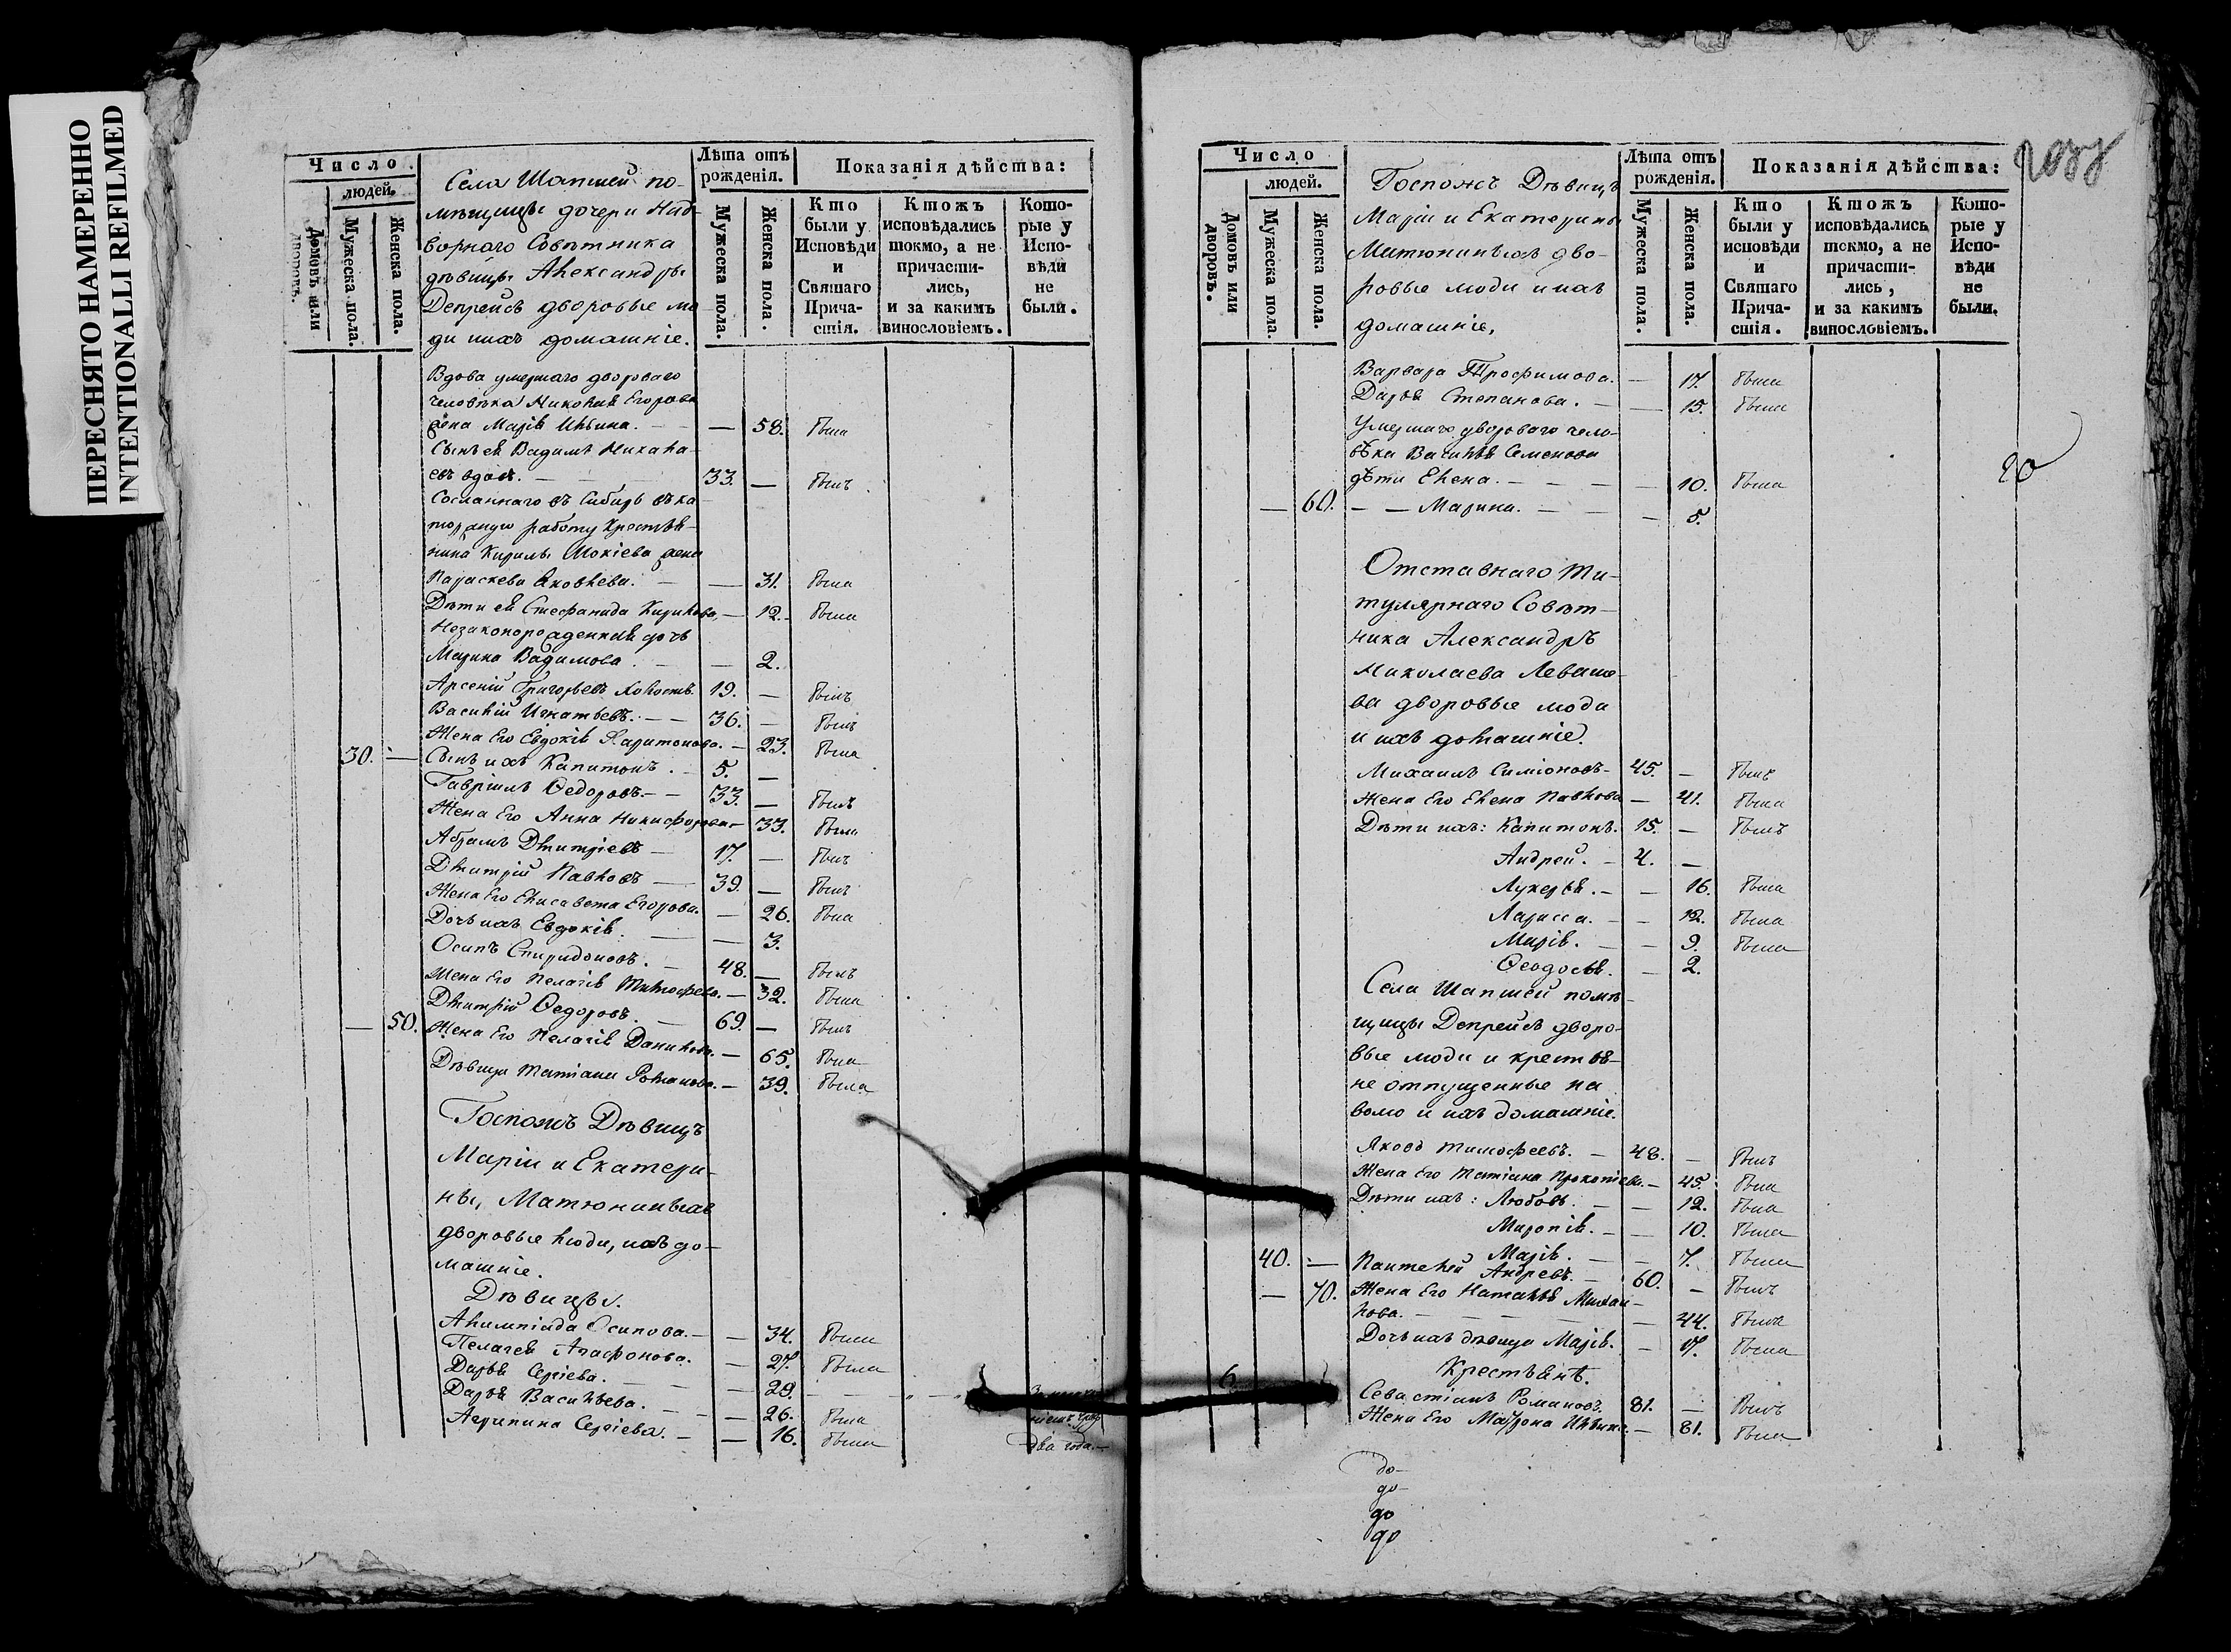 ПЕРЕСНЯТО НАМЕРЕННО
INTENTIONALLI REFILMED
Число
людей.
Домовъ или дворовъ.
Мужеска пола.
Женска пола.
Села Шапшей по-
мѣщицы дочери Над-
ворнаго Совѣтника
дѣвицы Александры
Депрейсъ дворовые лю-
ди ихъ домашніе.
Лѣта отъ рожденія.
Мужеска пола.
Женска пола.
Показанія дѣйства:
Кто были у Исповѣди и Святаго Прича-стія.
Ктожъ исповѣдались токмо, а не причасти-лись, и за какимъ винословіемъ.
Кото-рые у Испо-вѣди не были.
Вдова умершаго двороваго
человѣка Николая Егорова
жена Марія Ильина. — 58. была
Сынъ ея Вадимъ Никола-
евъ вдовъ. 33. — былъ
Сосланнаго въ Сибирь въ ка
торжную работу крестья-
нина Кирилы Мокіева жена
Параскева Яковлева. — 31. была
Дѣти ея Стефанида Кирилова — 12. была
Незаконорожденная дочь
Марина Вадимова. — 2.
Арсеній Григорьевъ холостъ. 19. — былъ
Василій Игнатьевъ. 36. — былъ
Жена Его Евдокія Харитонова. — 23. была
30. — Сынъ ихъ Капитонъ. 5. —
Гавріилъ Ѳедоровъ. 33. — былъ
Жена Его Анна Никифорова — 33. была
Абрамъ Дмитріевъ — 17. — былъ
Дмитрій Павловъ — 39. — былъ
Жена Его Елисавета Егорова. — 26. была
Дочь ихъ Евдокія. — 3.
Осипъ Спиридоновъ. 48. — былъ
Жена Его Пелагія Тимофеева. — 32. была
Дмитрій Ѳедоровъ. 69. — былъ
— 50. Жена Его Пелагія Данилова. — 65. была
Дѣвица Татіана Романова. — 39. была
Госпожъ Дѣвицъ
Маріи и Екатери-
ны, Матюниныхъ
дворовые люди, ихъ до-
машніе.
Дѣвицы.
Алимпіада Осипова. — 34. была
Пелагея Агафонова. — 27. была
Дарья Сергіева. — 29.
Дарья Васильева. — 26. была
Агрипина Сергіева. — 16. была
два года.
Число
людей.
Домовъ или дворовъ.
Мужеска пола.
Женска пола.
Госпожъ Дѣвицъ
Маріи и Екатерины
Матюниныхъ дво-
ровые люди и ихъ
домашніе,
Лѣта отъ рожденія.
Мужеска пола.
Женска пола.
Показанія дѣйства:
Кто были у исповѣди и Святаго Прича-стія.
Ктожъ исповѣдались токмо, а не причасти-лись, и за какимъ винословіемъ.
Кото-рые у Испо-вѣди не были.
Варвара Трофимова. — 17. была
Дарья Степанова. — 15. была
Умершаго двороваго чело-
вѣка Василья Семенова
дѣти Елена. — 10. была
— 60. — — Марина. — 5.
20
Отставнаго Ти-
тулярнаго Совѣт-
ника Александръ
Николаева Левашо-
ва дворовые люди
и ихъ домашніе.
Михаилъ Симіоновъ — 45. — былъ
Жена Его Елена Павлова — 41. была
Дѣти ихъ: Капитонъ. 15. — былъ
Андрей. — 4. —
Лукерья. — — 16. была
Лариса. — — 12. была
Марія. — — 9. была
Ѳеодосья. — 2.
Села Шапшей помѣ-
щицы Депрейсъ дворо-
вые люди и крестья-
не отпущенные на
волю и ихъ домашніе.
Яковъ Тимофеевъ. — 48. — былъ
Жена Его Татіана Прокопіева. — 45. была
Дѣти ихъ: Любовь. — — 12. была
Миропія. — — 10. была
Марія. — — 7. была
40. — Пантелей Андреевъ. — 60. — былъ
— 70. Жена Его Наталья Михаи-
лова. — 44. была
Дочь ихъ дѣвица Марія. — 17. была
Крестьянѣ.
6.
Севастіанъ Романовъ. 81. — былъ
Жена Его Матрона Ильина. — 81. была
до-
до-
до
до